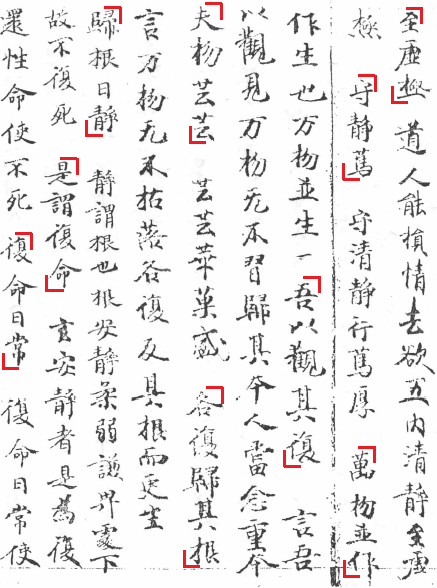 至虛極 道人能損情去欲五內清靜至虛
極 守靜篤 守清靜行篤厚 萬物並作
作生也万物並生一吾以觀其復 言吾
以觀見万物无不習歸其本人當念重本
夫物芸芸 芸芸華菓盛 各復歸其根
言万物无不枯落各復反其根而更生
歸根曰靜 靜謂根也根安靜柔弱謙卑處下
故不復死 是謂復命 言安靜者是爲復
還性命使不死 復命曰常 復命曰常使